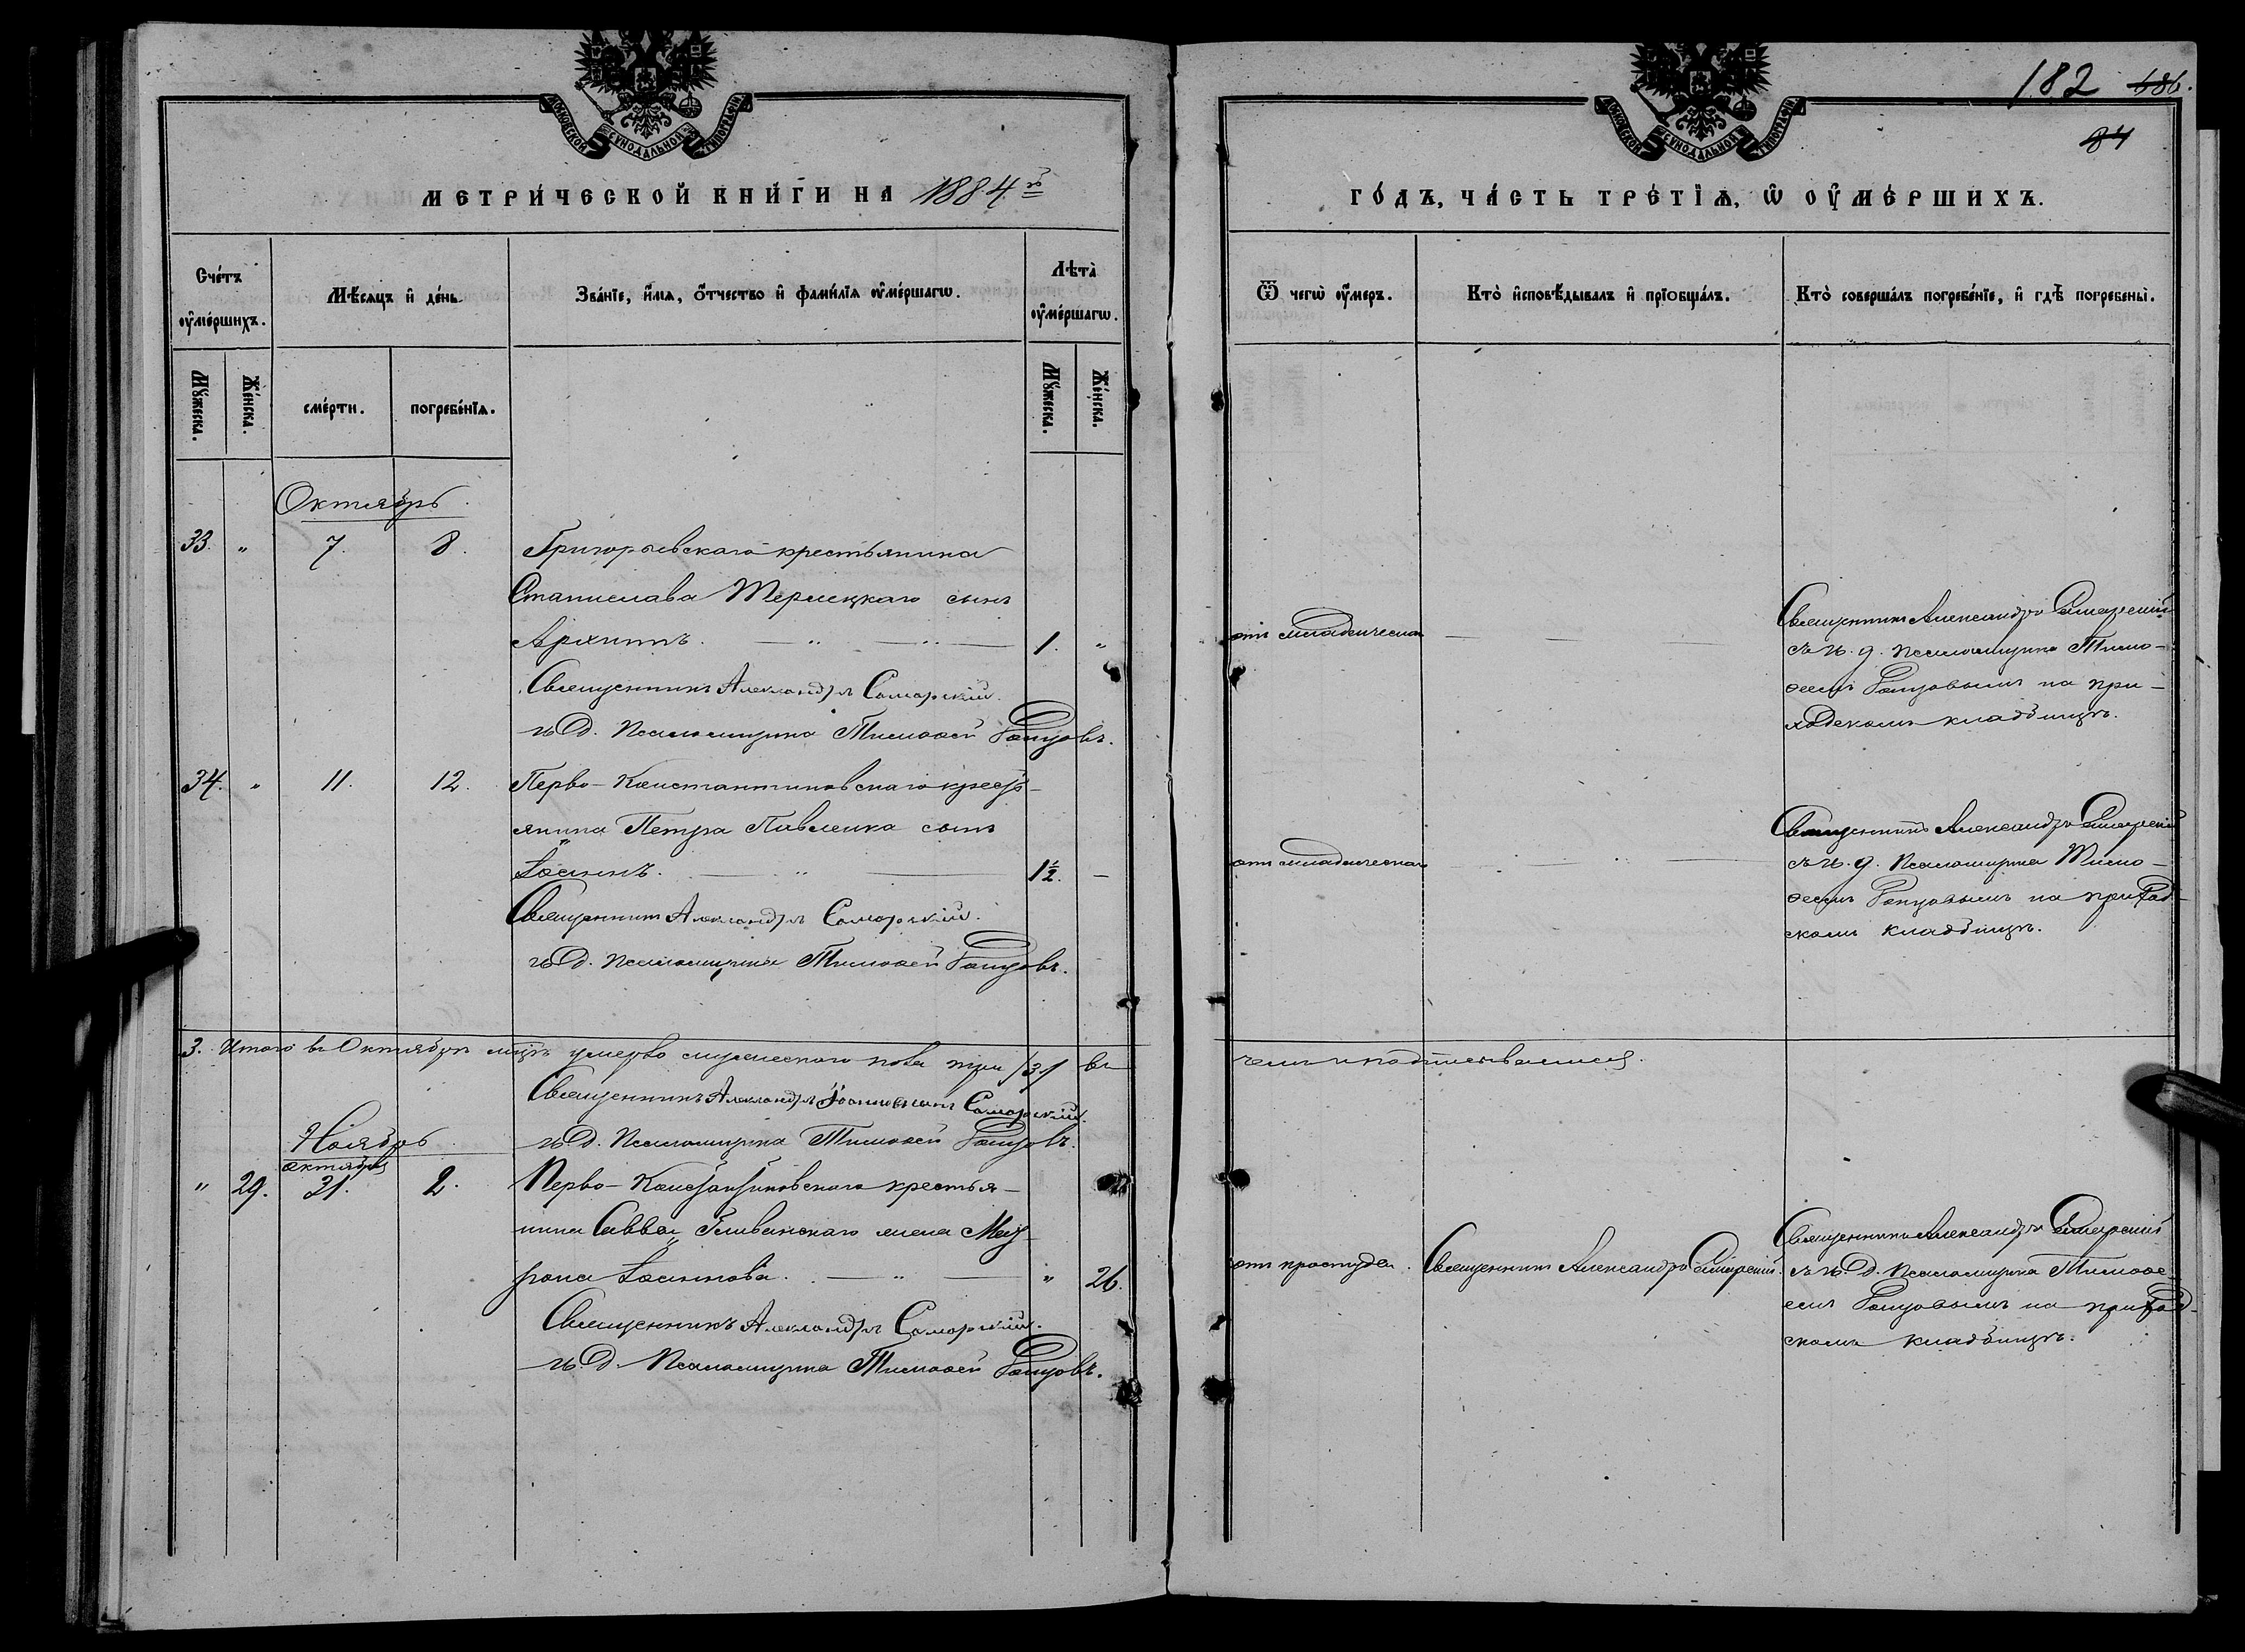 МОСКОВСКОЙ СѴНОДАЛЬНОЙ ТИПОГРАФІИ
МЕТРИ́ЧЕСКОЙ КНИ́ГИ НА 1884 й
Сче́тъ ᲂу҆ме́ршихъ.
Мѣ́сяцъ и҆ де́нь.
Зва́нїе, и҆́мѧ, ѻ҆́тчество и҆ фами́лїѧ ᲂу҆ме́ршагѡ.
Лѣта̀ ᲂу҆ме́ршагѡ.
Мꙋ́жеска.
Же́нска.
сме́рти.
погребе́нїѧ.
Мꙋ́жеска.
Же́нска.
Октябрь
33. " 7. 8. Григорьевскаго крестьянина
Станислава Терлецкаго сынъ
Архипъ. — " — 1. "
Священникъ Александръ Самарскій.
И. Д. Псаломщика Тимоѳей
34. " 11. 12. Перво-Константиновскаго крест-
янина Петра Павленка сынъ
Іоаннъ. — " — 1½. —
Священникъ Александръ Самарскій.
И. Д. Псаломщика Тимоѳей
3. Итого въ Октябрѣ мцѣ умерло мужескаго пола три /3/ въ
Священникъ Александръ Іоанновичъ Самарскій.
И. Д. Псаломщика Тимоѳей
Ноябрь
октября
" 29. 31. 2. Перво-Константиновскаго крестья-
нина Саввы жена Мат-
рона Іоаннова. — " — " 26.
Священникъ Александръ Самарскій.
И. Д. Псаломщика Тимоѳей
182 686.
84
МОСКОВСКОЙ СѴНОДАЛЬНОЙ ТИПОГРАФІИ
ГО́ДЪ, ЧА́СТЬ ТРЕ́ТЇѦ, Ѡ҆ ОУ҆МЕ́РШИХЪ.
Ѿ чегѡ̀ ᲂу҆́меръ.
Кто̀ и҆сповѣ́дывалъ и҆ прїобща́лъ.
Кто̀ соверша́лъ погребе́нїе, и҆ гдѣ̀ погребены̀.
отъ младенческой — —
Священникъ Александръ Самарскій
съ И. д. Псаломщика Тимо-
ѳеемъ на при-
ходскомъ кладбищѣ.
отъ младенческой — —
Священникъ Александръ Самарскій
съ И. д. Псаломщика Тимо-
ѳеемъ на приход-
скомъ кладбищѣ.
чемъ и подписываемся.
отъ простуды. Священникъ Александръ Самарскій.
Священникъ Александръ Самарскій
съ И. Д. Псаломщика Тимоѳе-
емъ на приход-
скомъ кладбищѣ.